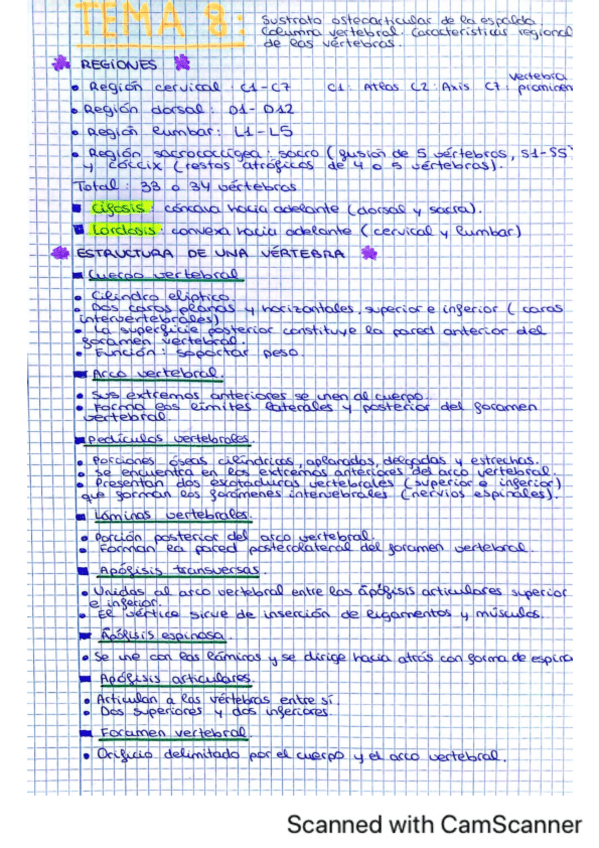 TEMA 8:
Sustrato osteoarticular de la espalda.
Columna vertebral. Características regional
de las vértebras.
REGIONES
• Región cervical: C1-C7 C1: Atlas C2: Axis C7: vértebra prominen
• Región dorsal: D1-D12
• Región lumbar: L1-L5
• Región sacrococcígea: sacro (fusión de 5 vértebras, S1-S5
y cóccix (restos atróficos de 4 o 5 vértebras).
Total: 33 o 34 vértebras
Cifosis: cóncava hacia adelante (dorsal y sacra).
Lordosis: convexa hacia adelante (cervical y lumbar)
ESTRUCTURA DE UNA VÉRTEBRA
Cuerpo vertebral
• Cilindro elíptico.
• Dos caras planas y horizontales, superior e inferior (caras
intervertebrales)
• La superficie posterior constituye la pared anterior del
foramen vertebral.
• Función: soportar peso.
Arco vertebral.
• Sus extremos anteriores se unen al cuerpo.
• Forma los límites laterales y posterior del foramen
vertebral.
Pedículos vertebrales.
• Porciones óseas cilíndricas, aplanadas, delgadas y estrechas.
• Se encuentra en los extremos anteriores del arco vertebral.
• Presentan dos escotaduras vertebrales (superior e inferior)
que forman los forámenes intervebrales (nervios espinales).
Láminas vertebrales.
• Porción posterior del arco vertebral.
• Forman la pared posterolateral del foramen vertebral.
Apófisis transversas.
• Unidas al arco vertebral entre las apófisis articulares superior
e inferior.
• El vértice sirve de inserción de ligamentos y músculos.
Apófisis espinosa
• Se une con las láminas y se dirige hacia atrás con forma de espina
Apófisis articulares.
• Articulan a las vértebras entre sí.
• Dos superiores y dos inferiores.
Foramen vertebral.
• Orificio delimitado por el cuerpo y el arco vertebral.
Scanned with CamScanner